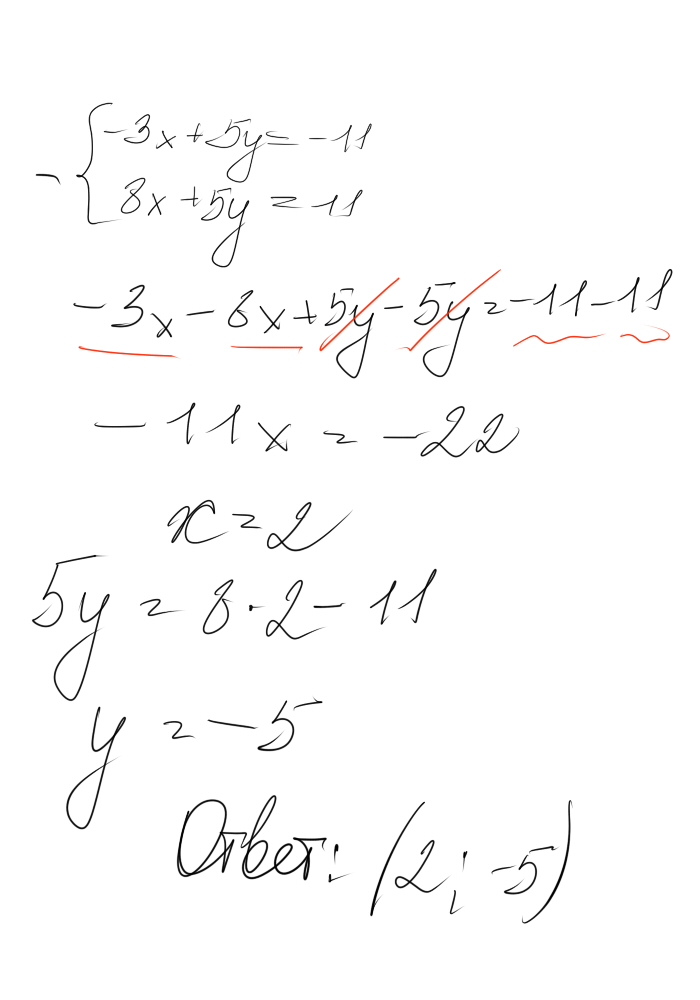 - { -3x + 5y = -11
8x + 5y = 11
-3x - 8x + 5y - 5y = -11 - 11
-11x = -22
x = 2
5y = 8 · 2 - 11
y = -5
Ответ: (2; -5)